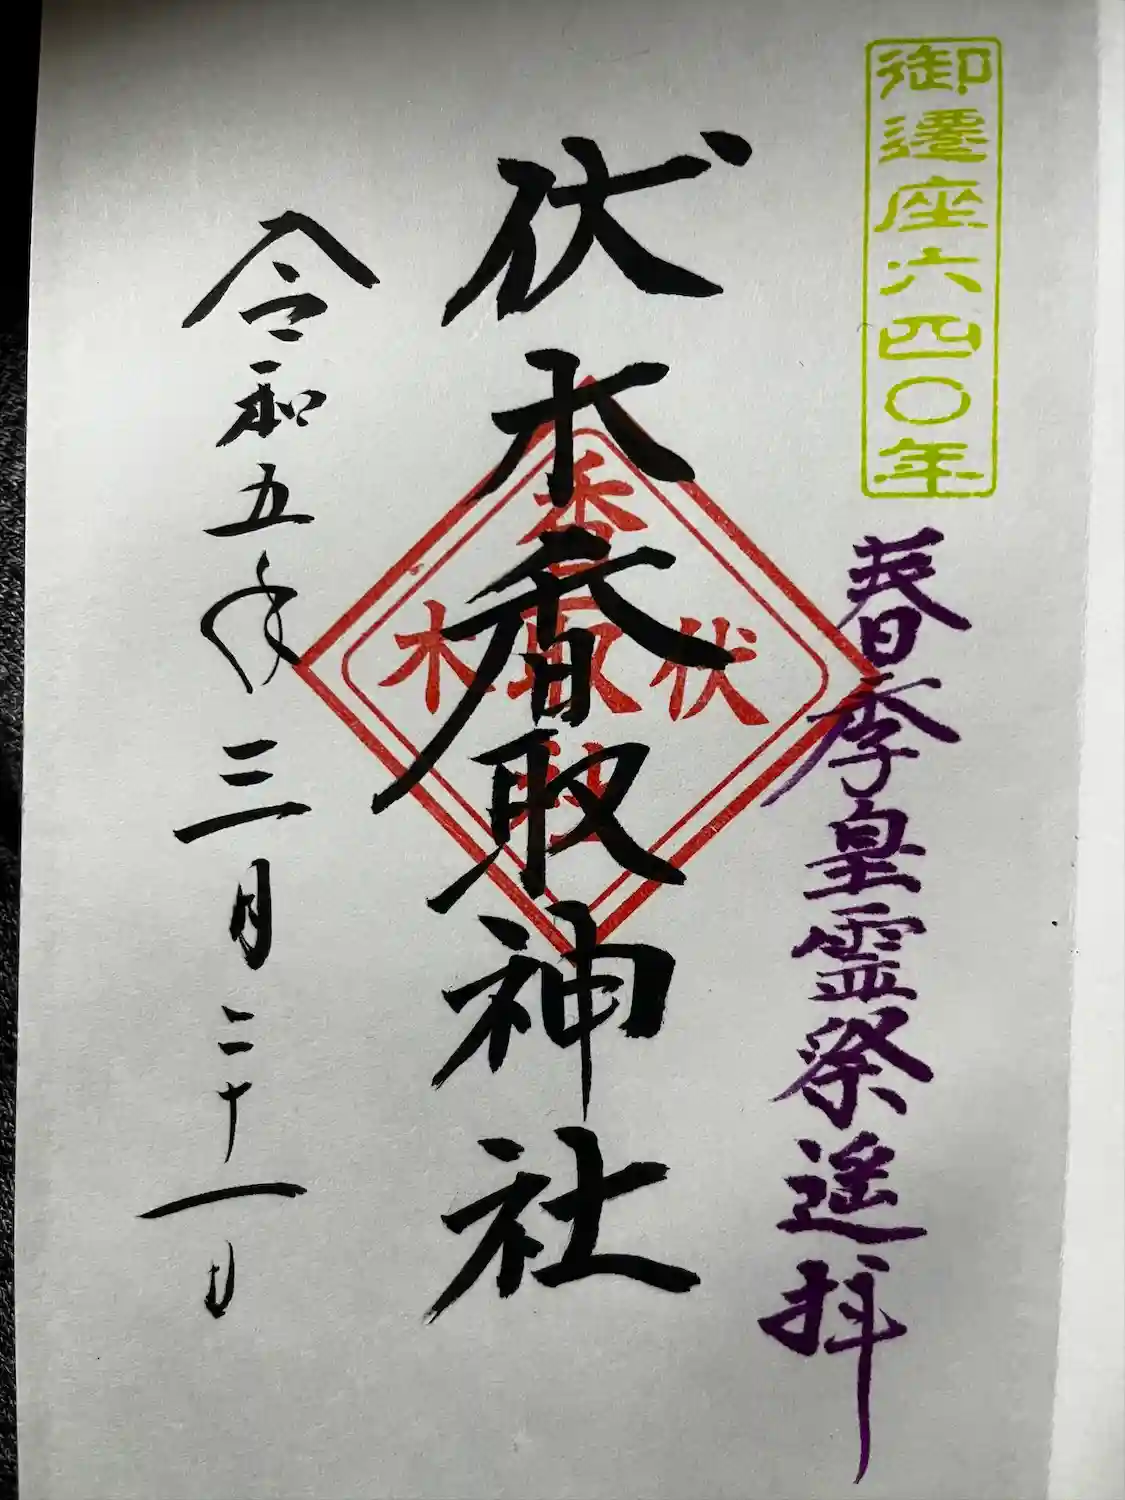 御遷座六四〇年
春季皇霊祭遥拝
伏木香取神社
伏木香取社
令和五年三月二十一日